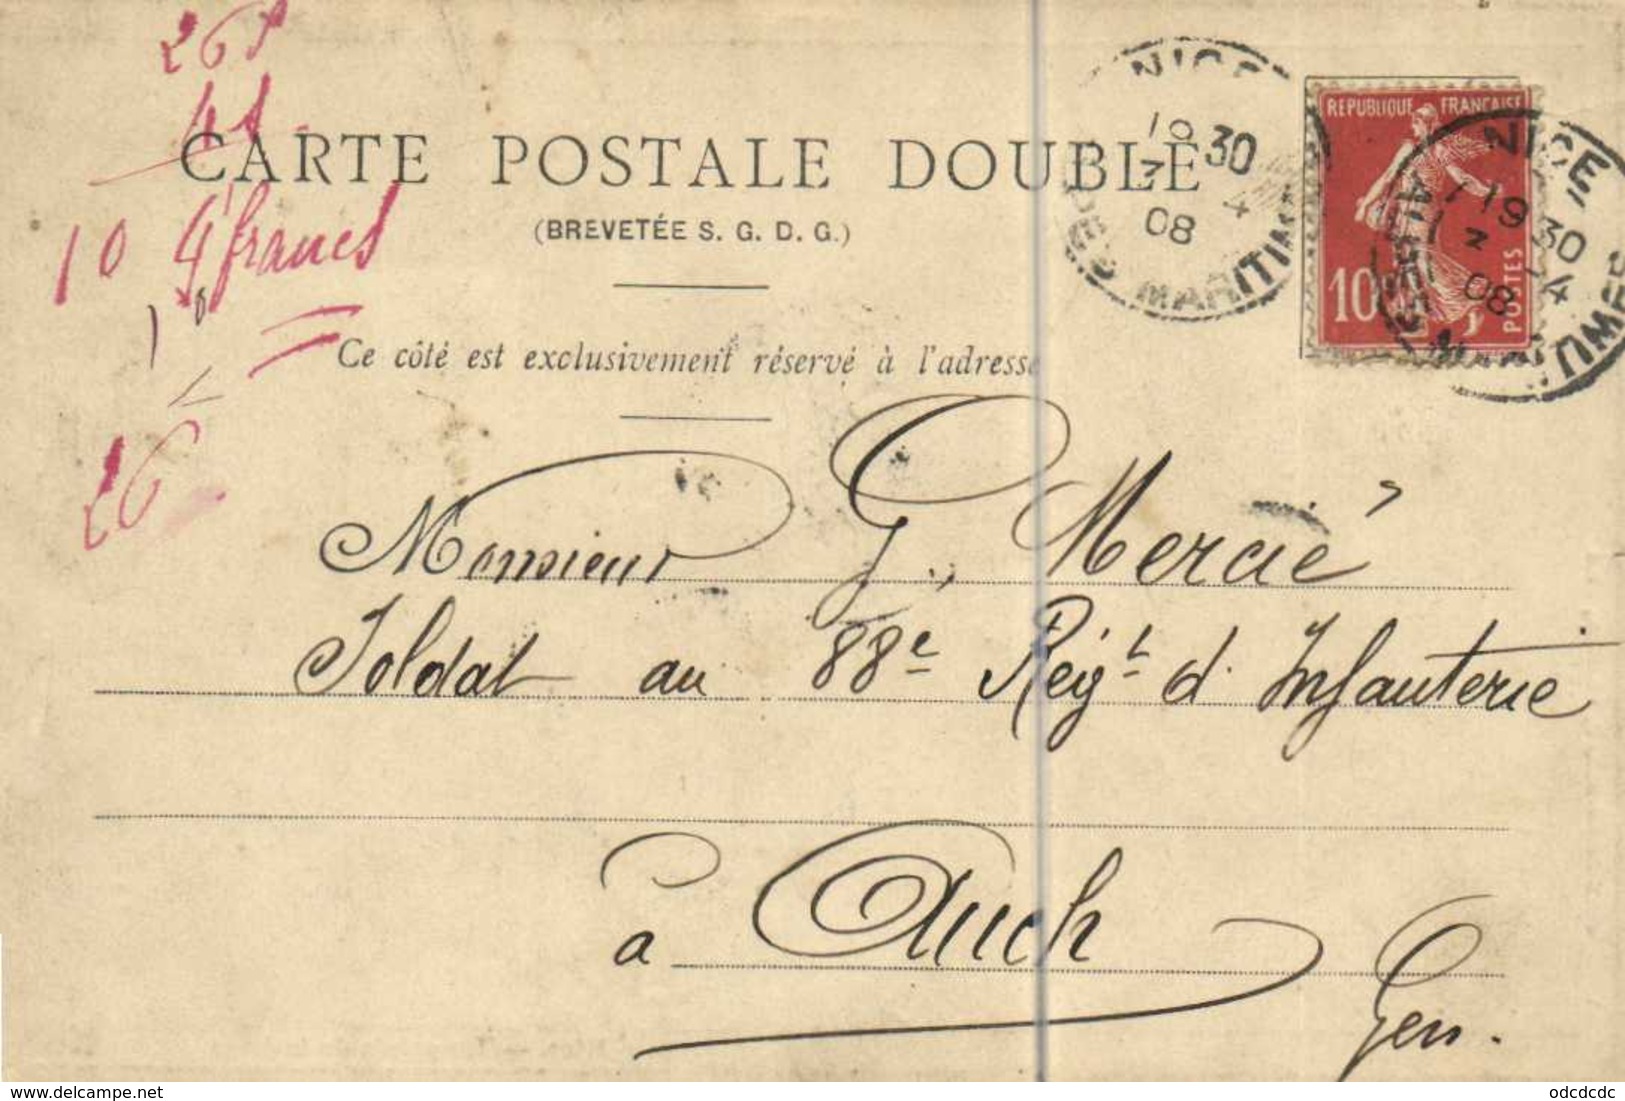 26
CARTE POSTALE DOUBLE
(BREVETÉE S. G. D. G.)
10 4 francs
Ce côté est exclusivement réservé à l'adresse
26
NICE
30
4
08
MARITIM
REPUBLIQUE FRANÇAISE
10
POSTES
NICE
19 30
4
08
Monsieur G. Mercié
Soldat au 88e Régt d'Infanterie
à Auch
Gers.
delcampe.net
odcdcdc